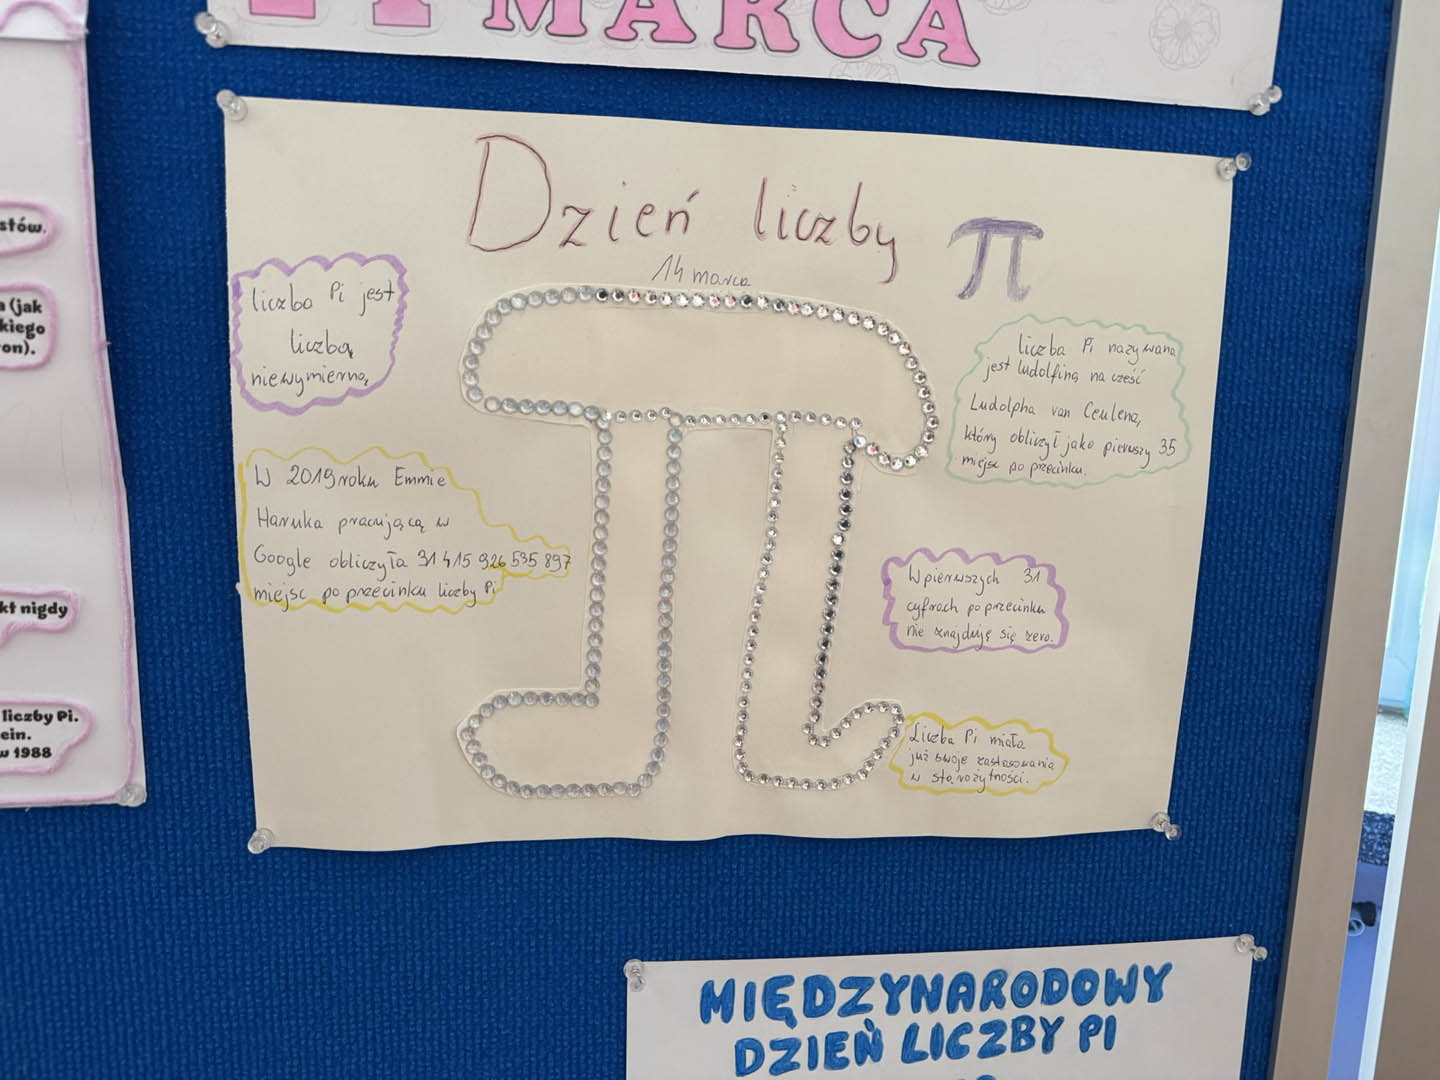 MARCA
Dzień liczby π
14 marca
liczba Pi jest
liczbą
niewymierną
W 2019 roku Emmie
Haruka pracującą w
Google obliczyła 31 415 926 535 897
miejsc po przecinku liczby Pi
liczba Pi nazywana
jest ludolfiną na cześć
Ludolpha van Ceulena,
który obliczył jako pierwszy 35
miejsc po przecinku.
W pierwszych 31
cyfrach po przecinku
nie znajduję się zero.
Liczba Pi miała
już swoje zastosowania
w starożytności.
stów.
a (jak
kiego
on).
kt nigdy
liczby Pi.
ein.
w 1988
MIĘDZYNARODOWY
DZIEŃ LICZBY PI